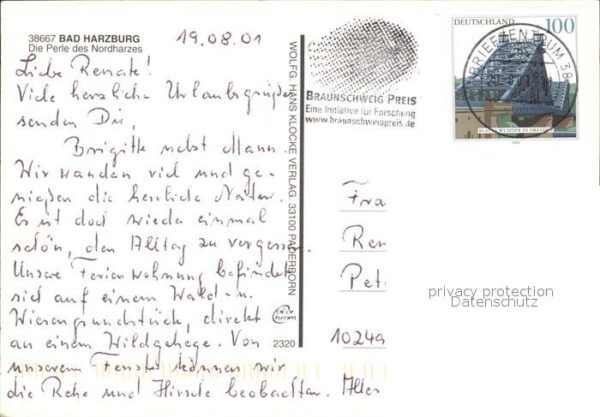 38667 BAD HARZBURG
Die Perle des Nordharzes
19.08.01
Liebe Renate!
Viele herzliche Urlaubsgrüße
senden Dir,
Brigitte nebst Mann.
Wir wandern viel und ge-
nießen die herrliche Natur.
Es ist doch wieder einmal
schön, den Alltag zu vergessen.
Unsere Ferienwohnung befindet
sich auf einem Wald- u.
Wiesengrundstück, direkt
an einem Wildgehege. Von
unserem Fenster können wir
die Rehe und Hirsche beobachten. Alles
WOLFG. HANS KLOCKE VERLAG, 33100 PADERBORN
2320
BRAUNSCHWEIG PREIS
Eine Initiative für Forschung
www.braunschweigpreis.de
DEUTSCHLAND 100
BRIEFZENTRUM 38
BLAUES WUNDER IN DRESDEN
Fra
Ren
Pet
10249
privacy protection
Datenschutz